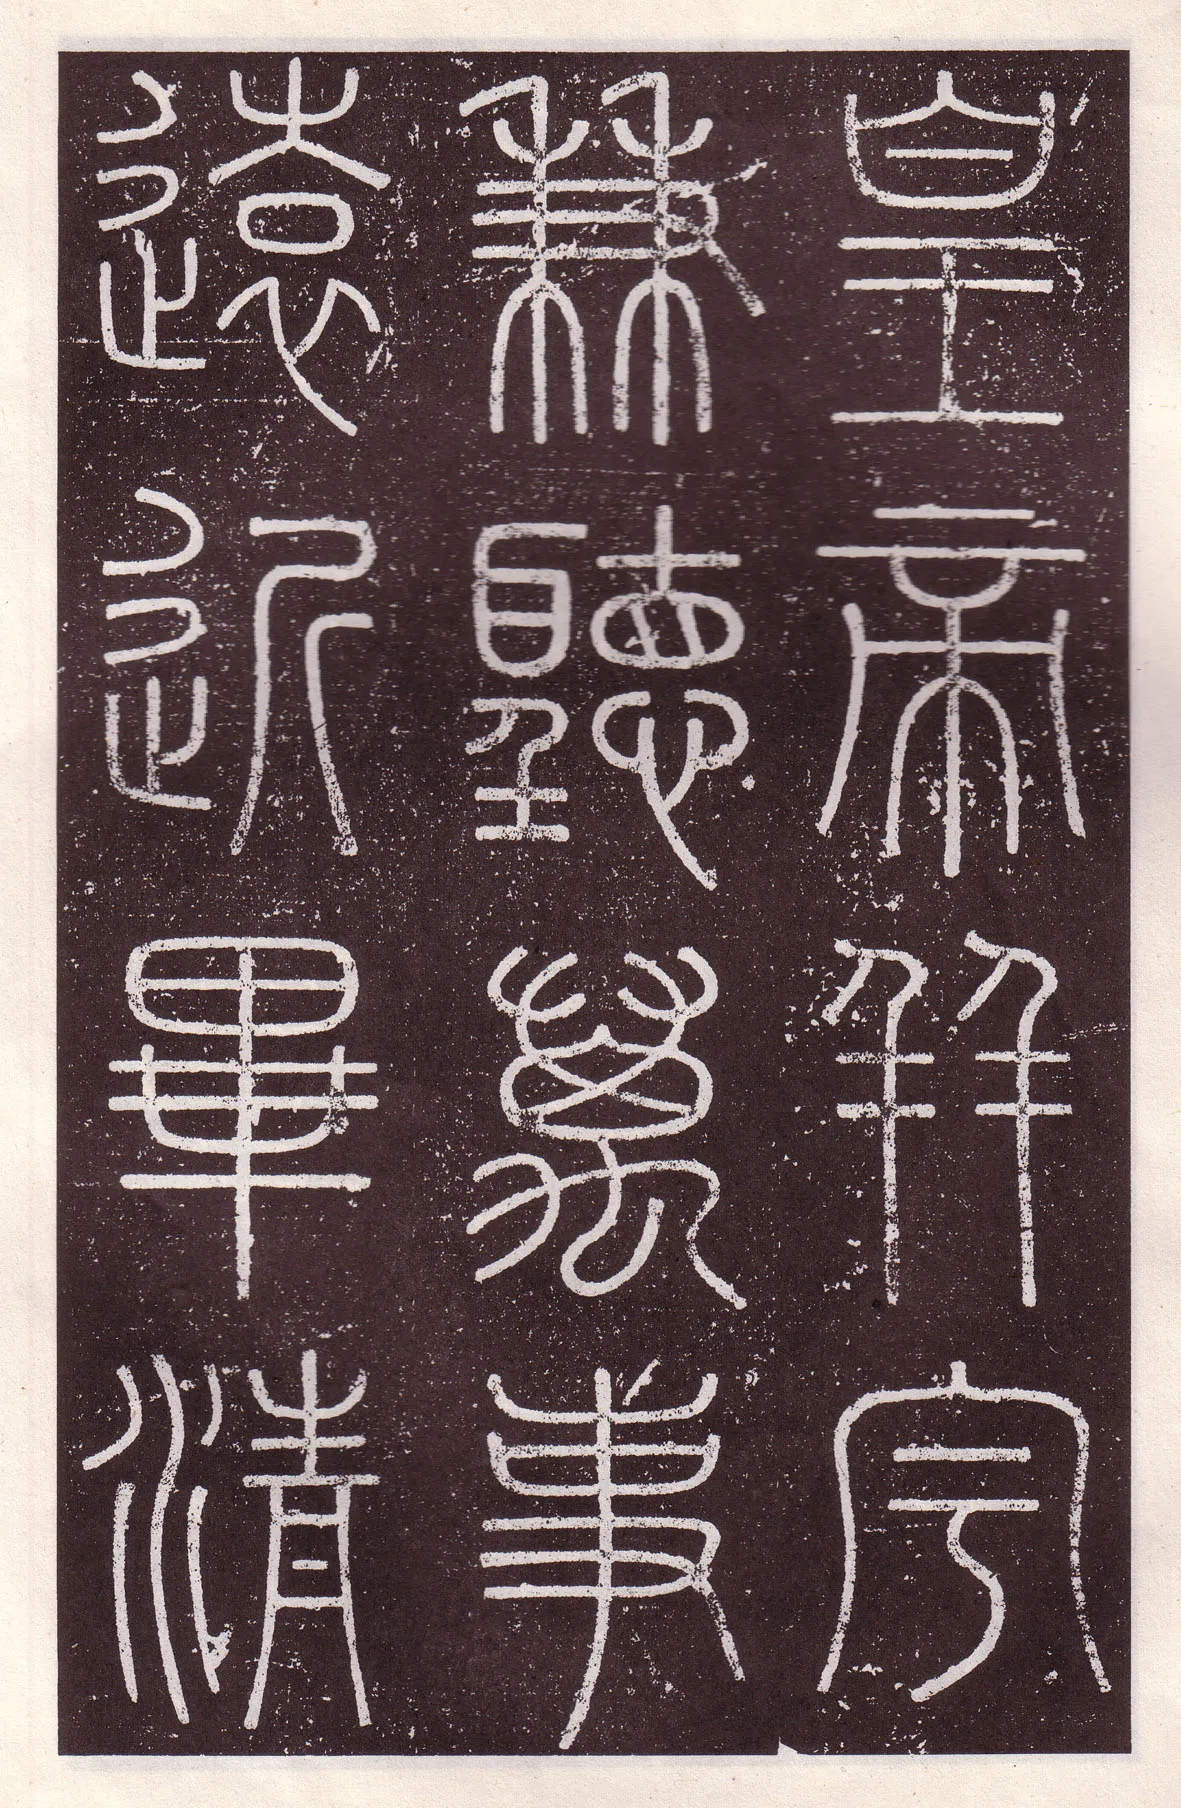 皇帝并宇
兼聽萬事
遠近畢清